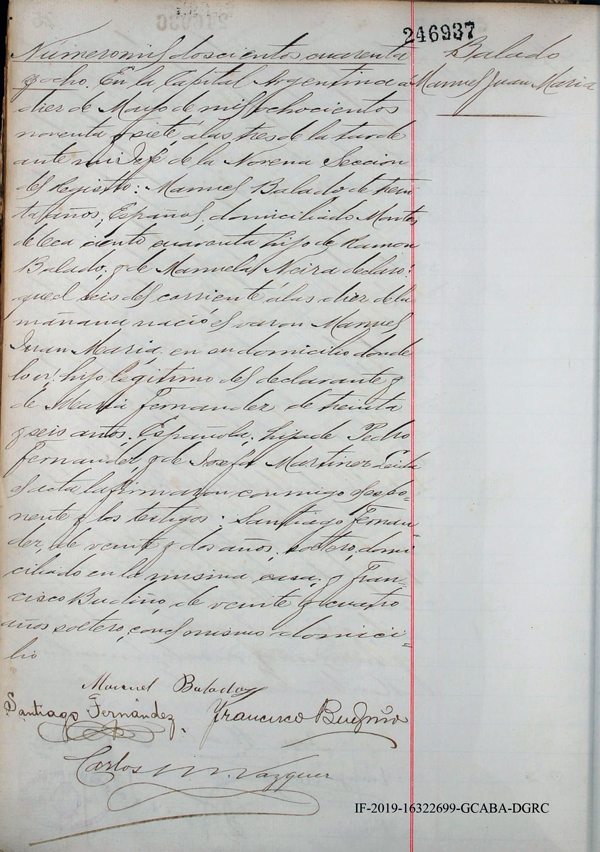 246937
Balado
Manuel Juan Maria
Numero mil doscientos cuarenta
y ocho. En la Capital Argentina á
diez de Mayo de mil ochocientos
noventa y siete, á las tres de la tarde
ante mi Jefe de la Novena Seccion
del Registro: Manuel Balado, de trein=
ta años, Español, domiciliado Montes
deleca ciento cuarenta hijo de Ramon
Balado, y de Manuela Neira declaró:
que el seis del corriente á las diez de la
mañana nació el varon Manuel
Juan Maria, en su domicilio donde
lo ví, hijo legitimo del declarante y
de Maria Fernandez de treinta
y seis años, Española, hija de Pedro
Fernandez, y de Josefa Martinez. Leida
el acta la firmaron conmigo el expo=
nente y los testigos: Santiago Fernan=
dez, de veinte y dos años, soltero, domi=
ciliado en la misma casa, y Fran=
cisco Budiño de veinte y cuatro
años soltero, con el mismo domici=
lio
Manuel Balado
Santiago Fernández. Francisco Budiño
Carlos M. Vazquez
IF-2019-16322699-GCABA-DGRC